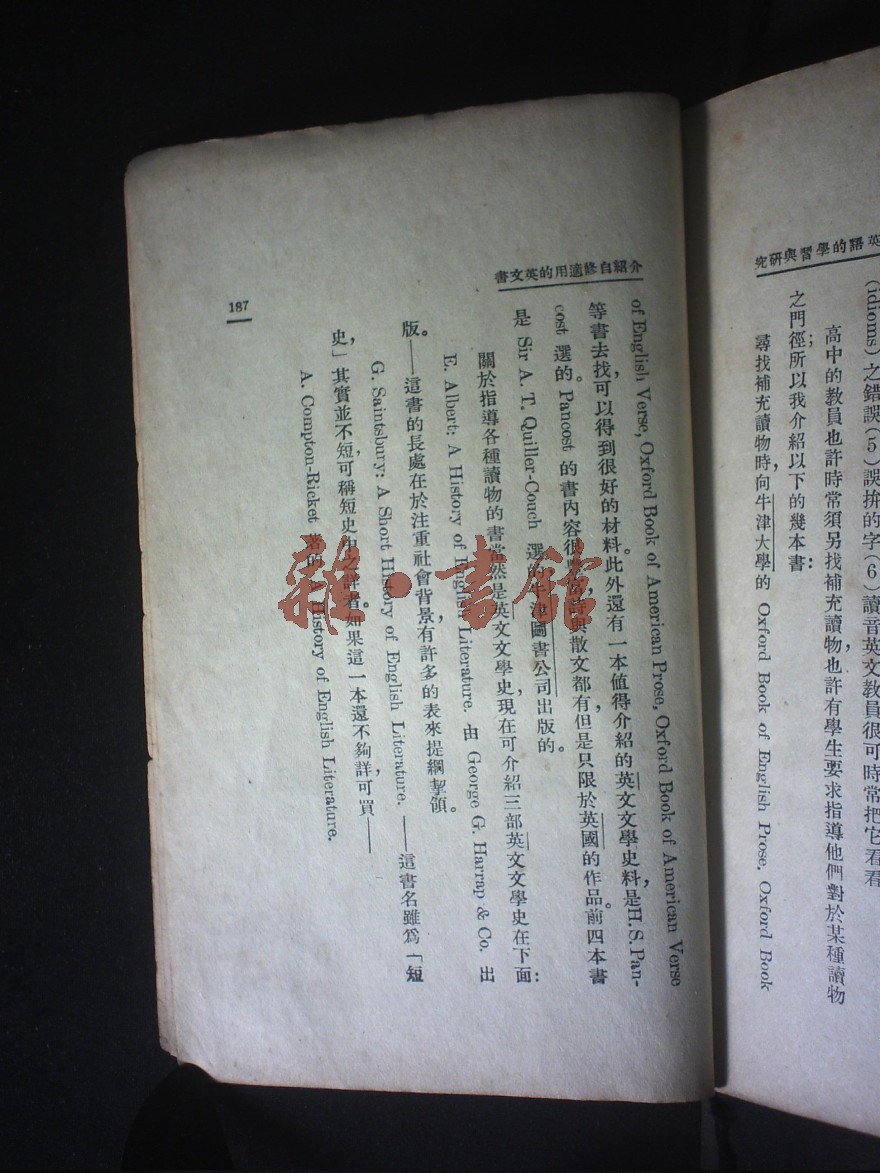 英語的學習與研究
(idioms)之錯誤(5)誤拚的字(6)讀音英文教員很可時常把它看看
高中的教員也許時常須另找補充讀物，也許有學生要求指導他們對於某種讀物
之門徑；所以我介紹以下的幾本書：
尋找補充讀物時，向牛津大學的 Oxford Book of English Prose, Oxford Book
介紹自修適用的英文書
of English Verse, Oxford Book of American Prose, Oxford Book of American Verse
等書去找，可以得到很好的材料。此外還有一本值得介紹的英文文學史料，是H.S.Pan-
cost 選的。Pancost 的書內容很豐富，詩與散文都有，但是只限於英國的作品。前四本書
是 Sir A. T. Quiller-Couch 選的，牛津圖書公司出版的。
關於指導各種讀物的書當然是英文文學史，現在可介紹三部英文文學史在下面：
E. Albert: A History of English Literature. 由 George G. Harrap & Co. 出
版。——這書的長處在於注重社會背景，有許多的表來提綱挈領。
G. Saintsbury: A Short History of English Literature. ——這書名雖爲「短
史」，其實並不短，可稱短史中之詳者。如果這一本還不夠詳，可買——
A. Compton-Ricket 著的 A History of English Literature.
187
雜·書館